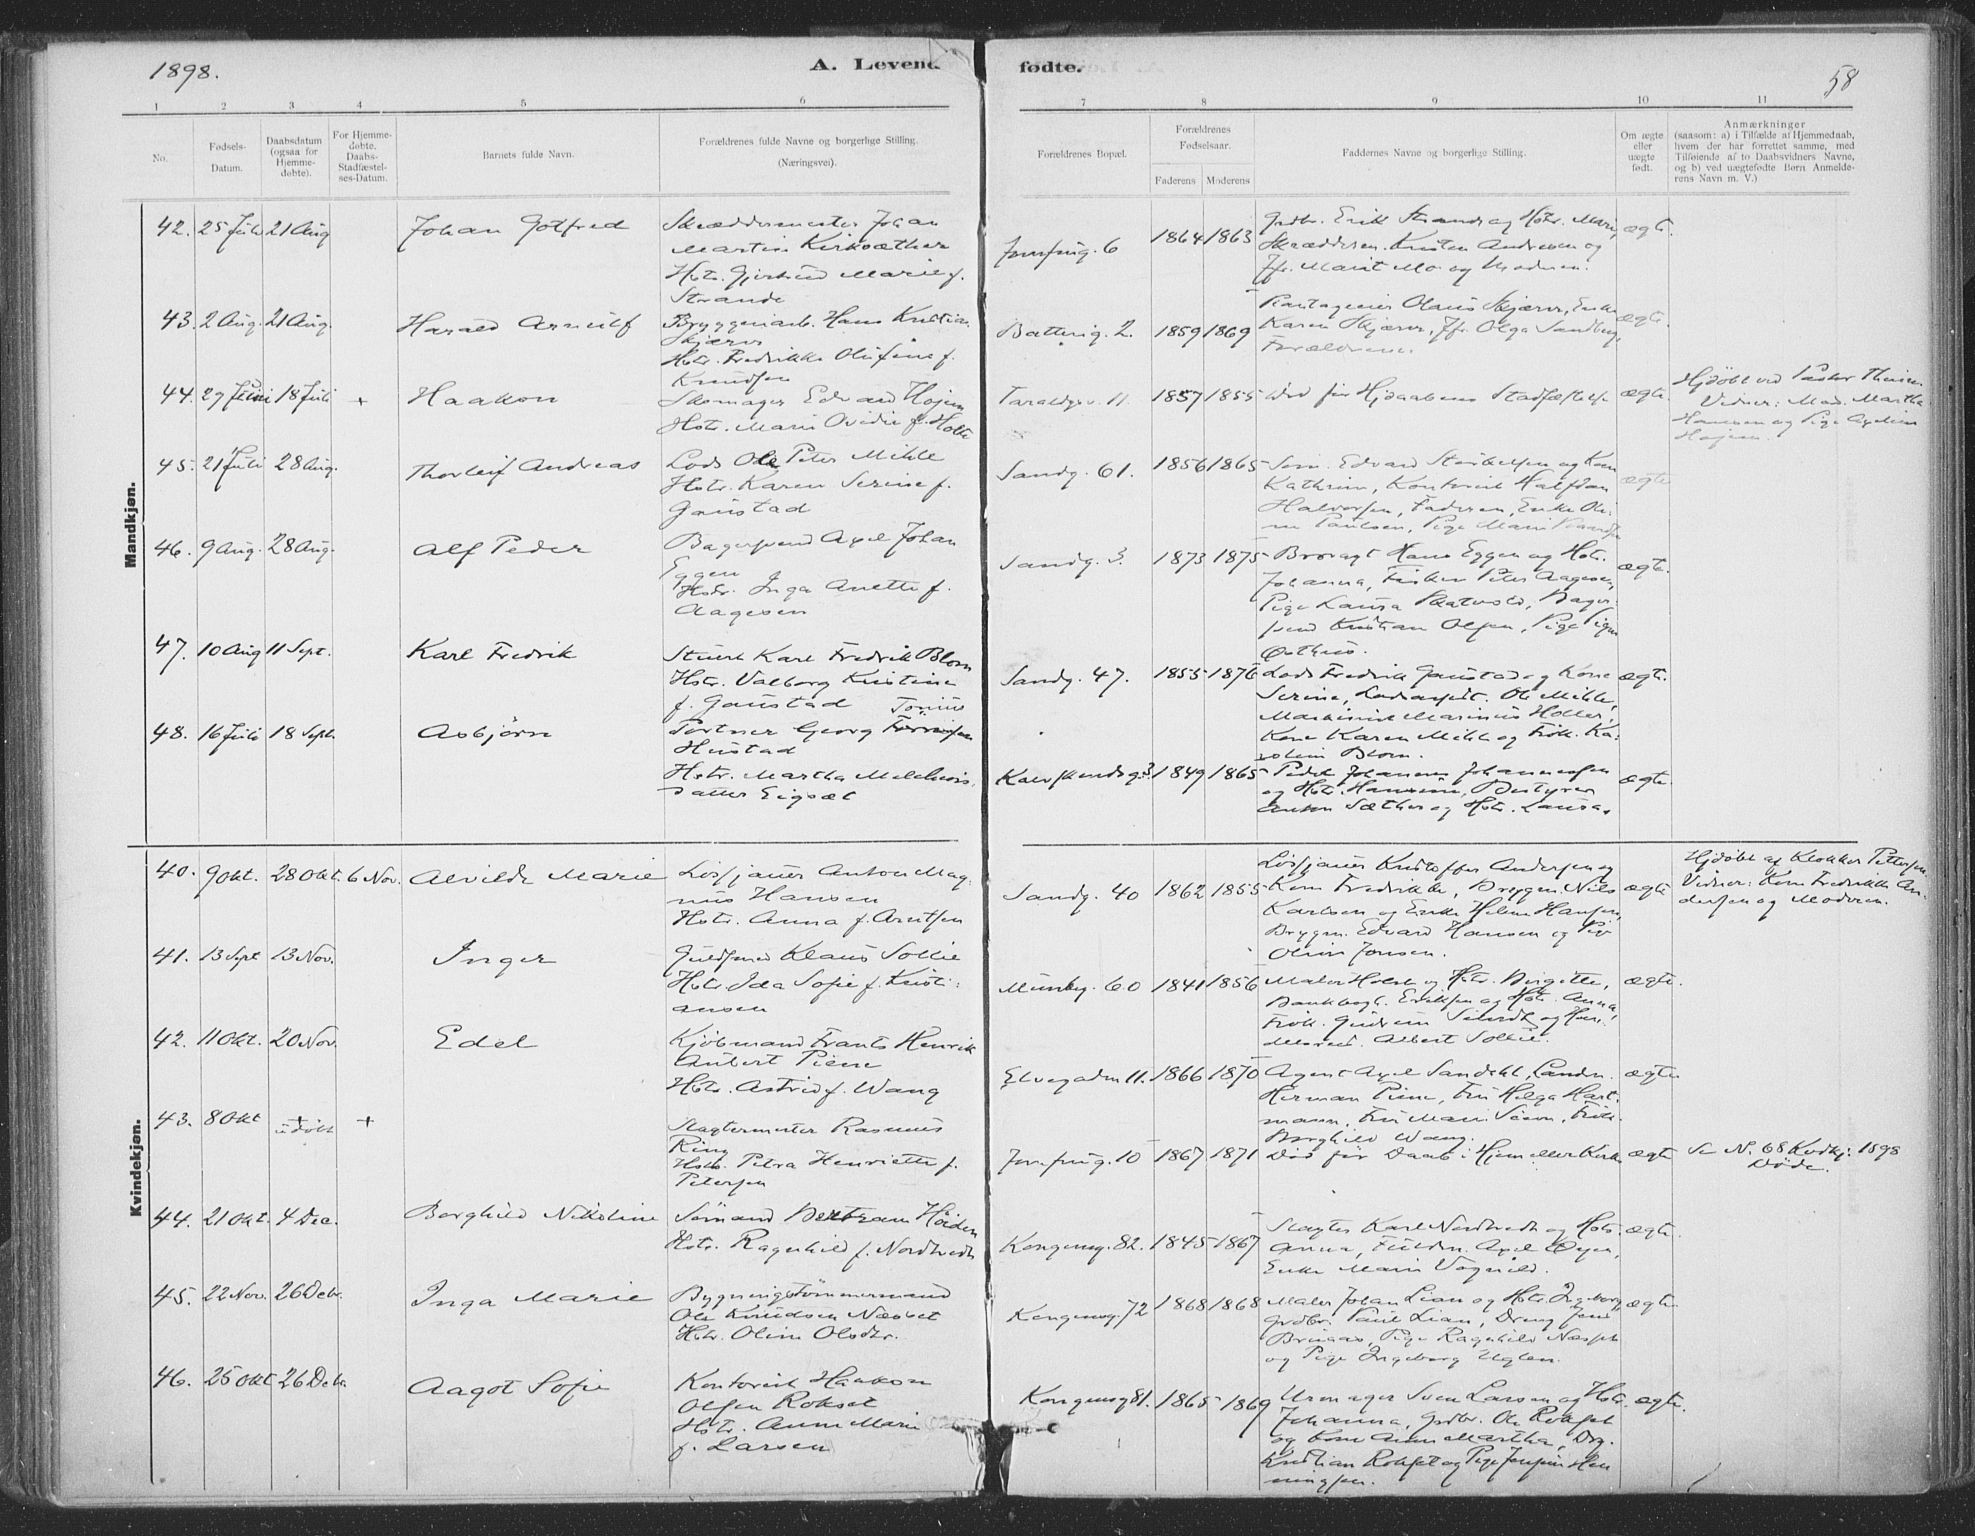 1898.
A. Levend
fødte.
58
1 2 3 4 5 6 7 8 9 10 11
No.
Fødsels-
Datum.
Daabsdatum
(ogsaa for
Hjemme-
døbte).
For Hjemme-
døbte.
Daabs-
Stadfæstel-
ses-Datum.
Barnets fulde Navn.
Forældrenes fulde Navne og borgerlige Stilling.
(Næringsvei).
Forældrenes Bopæl.
Forældrenes
Fødselsaar.
Faderens Moderens
Faddernes Navne og borgerlige Stilling.
Om ægte
eller
uægte
født.
Anmærkninger
(saasom: a) i Tilfælde af Hjemmedaab,
hvem der har forrettet samme, med
Tilføiende af to Daabsvidners Navne,
og b) ved uægtefødte Børn Anmelde-
rens Navn m. V.)
Mandkjøn.
42. 25 Juli 21 Aug Johan Gotfred
Skræddermester Johan
Martin Kirksæther
Hstr. Gjertrud Marie f.
Strande
Jomfrug. 6 1864 1863
Grdbr. Erik Strande og Hstr. Marit,
Skrædders. Kristen Andresen og
Jfr. Marit Mo og Moderen.
ægte.
43. 2 Aug. 21 Aug. Harald Arnulf
Bryggeriarb. Hans Kristian
Skjærv
Hstr. Fredrikke Olufine f.
Knudsen
Batterig. 2. 1859 1869
Olaus Skjærv, Enke
Karen Skjærv, Jfr. Olga Sandberg,
Forældrene.
ægte.
44. 27 Juni 18 Juli + Haakon
Skomager Edvard Hojem
Hstr. Marie Ovidie f. Holte
Taraldsgv. 11. 1857 1855
Død før Hjdaabens Stadfæstelse
ægte.
Hjdøbt ved Pastor
Vidner: Mad. Martha
Hansen og Pige
Hojem.
45. 21 Juli 28 Aug. Thorleif Andreas
Lods Ole Peter Mikle
Hstr. Karen Serine f.
Gaustad
Sandg. 61. 1856 1865
Søm. Edvard og Kone
Kathrine, Kontorist Halfdan
Halvorsen, Faderen, Enke Oli-
ne Paulsen, Pige Marie
ægte
46. 9 Aug. 28 Aug. Alf Peder
Bagersvend Axel Johan
Eggen
Hstr. Inga Anette f.
Aagesen
Sandg. 3. 1873 1875
Brovagt Hans Eggen og Hstr.
Johanna, Fisker Peter Aagesen,
Pige Laura Bager-
svend Kristian Olsen, Pige
Østhus.
ægte.
47. 10 Aug 11 Sept. Karl Fredrik
Stuert Karl Fredrik Blom
Hstr. Valborg Kristine
f. Gaustad
Sandg. 47. 1855 1876
Lods Fredrik Gaustad og Kone
Serine, Ole Mikle,
Maskinist Marinius Holler,
Kone Karen Mikle og Frøk. Ka-
roline Blom.
ægte.
48. 16 Juli 18 Sept. Asbjørn
Portner Georg
Hustad
Hstr. Martha Melchiors-
datter Eigsæt
Kalvskindsg. 3 1849 1865
Johannes Johannessen
og Hstr. Hansine, Bestyrer
Anton Sæther og Hstr. Laura.
ægte.
Kvindekjøn.
40. 9 Okt. 28 Okt. 6 Nov. Alvilde Marie
Løsjauer Anton Mag-
nus Hansen
Hstr. Anna f. Arntsen
Sandg. 40 1862 1855
Løsjauer Kristoffer Andersen og
Kone Fredrikke, Bryggm. Nils
Karlsen og Enke Helene Hansen,
Bryggm. Edvard Hansen og Pig.
Oline Jonsen.
ægte
Hjdøbt af Klokker Pettersen.
Vidner: Kone Fredrikke An-
dersen og Moderen.
41. 13 Sept 13 Nov. Inger
Guldsmed Klaus Sollie
Hstr. Ida Sofie f. Kristi-
ansen
Munkg. 60 1841 1856
Maler Holst og Hstr. Birgitte,
Bankbogh. Eriksen og Hstr. Anna,
Frøk. Gudrun og Han-
Albert Sollie.
ægte.
42. 11 Okt. 20 Nov. Edel
Kjøbmand Frants Henrik
Aubert Piene
Hstr. Astrid f. Wang
Elvegaden 11. 1866 1870
Agent Axel Sandahl, Landm.
Herman Piene, Fru Helga Hart-
mann, Fru Marie Frøk.
Borghild Wang.
ægte
43. 8 Okt + udøbt +
Slagtermester Rasmus
Ring
Hstr. Petra Henriette f.
Petersen
Jomfrug. 10 1867 1871
Død før Daab i Hjem eller Kirke
ægte
Se N. 68 Kvdkj. 1898
Døde.
44. 21 Okt. 4 Dec. Borghild Nikoline
Sømand Bertram Høiden
Hstr. Ragnhild f. Nordtvedt
Kongensg. 82. 1845 1867
Slagter Karl Nordtvedt og Hstr.
Anna, Axel Øyen,
Enke Marie Vognild.
ægte.
45. 22 Nov. 26 Debr. Inga Marie
Bygningstømmermand
Ole Knudsen Næsset
Hstr. Oline Olsdtr.
Kongensg. 72 1868 1868
Maler Johan Lian og Hstr. Ingeborg,
Grdbr. Paul Lian, Dreng Jens
Bruaas, Pige Ragnhild Næsset
og Pige Ingeborg Uglen.
ægte.
46. 25 Okt 26 Debr. Aagot Sofie
Kontorist Haakon
Olsen Rokset
Hstr. Anne Marie
f. Larsen
Kongensg 81. 1865 1869
Urmager Sven Larsen og Hstr.
Johanna, Grdbr. Ole Rokset
og Kone Anne Martha, Drg.
Kristian Rokset og Pige Hen-
ningsen.
ægte.